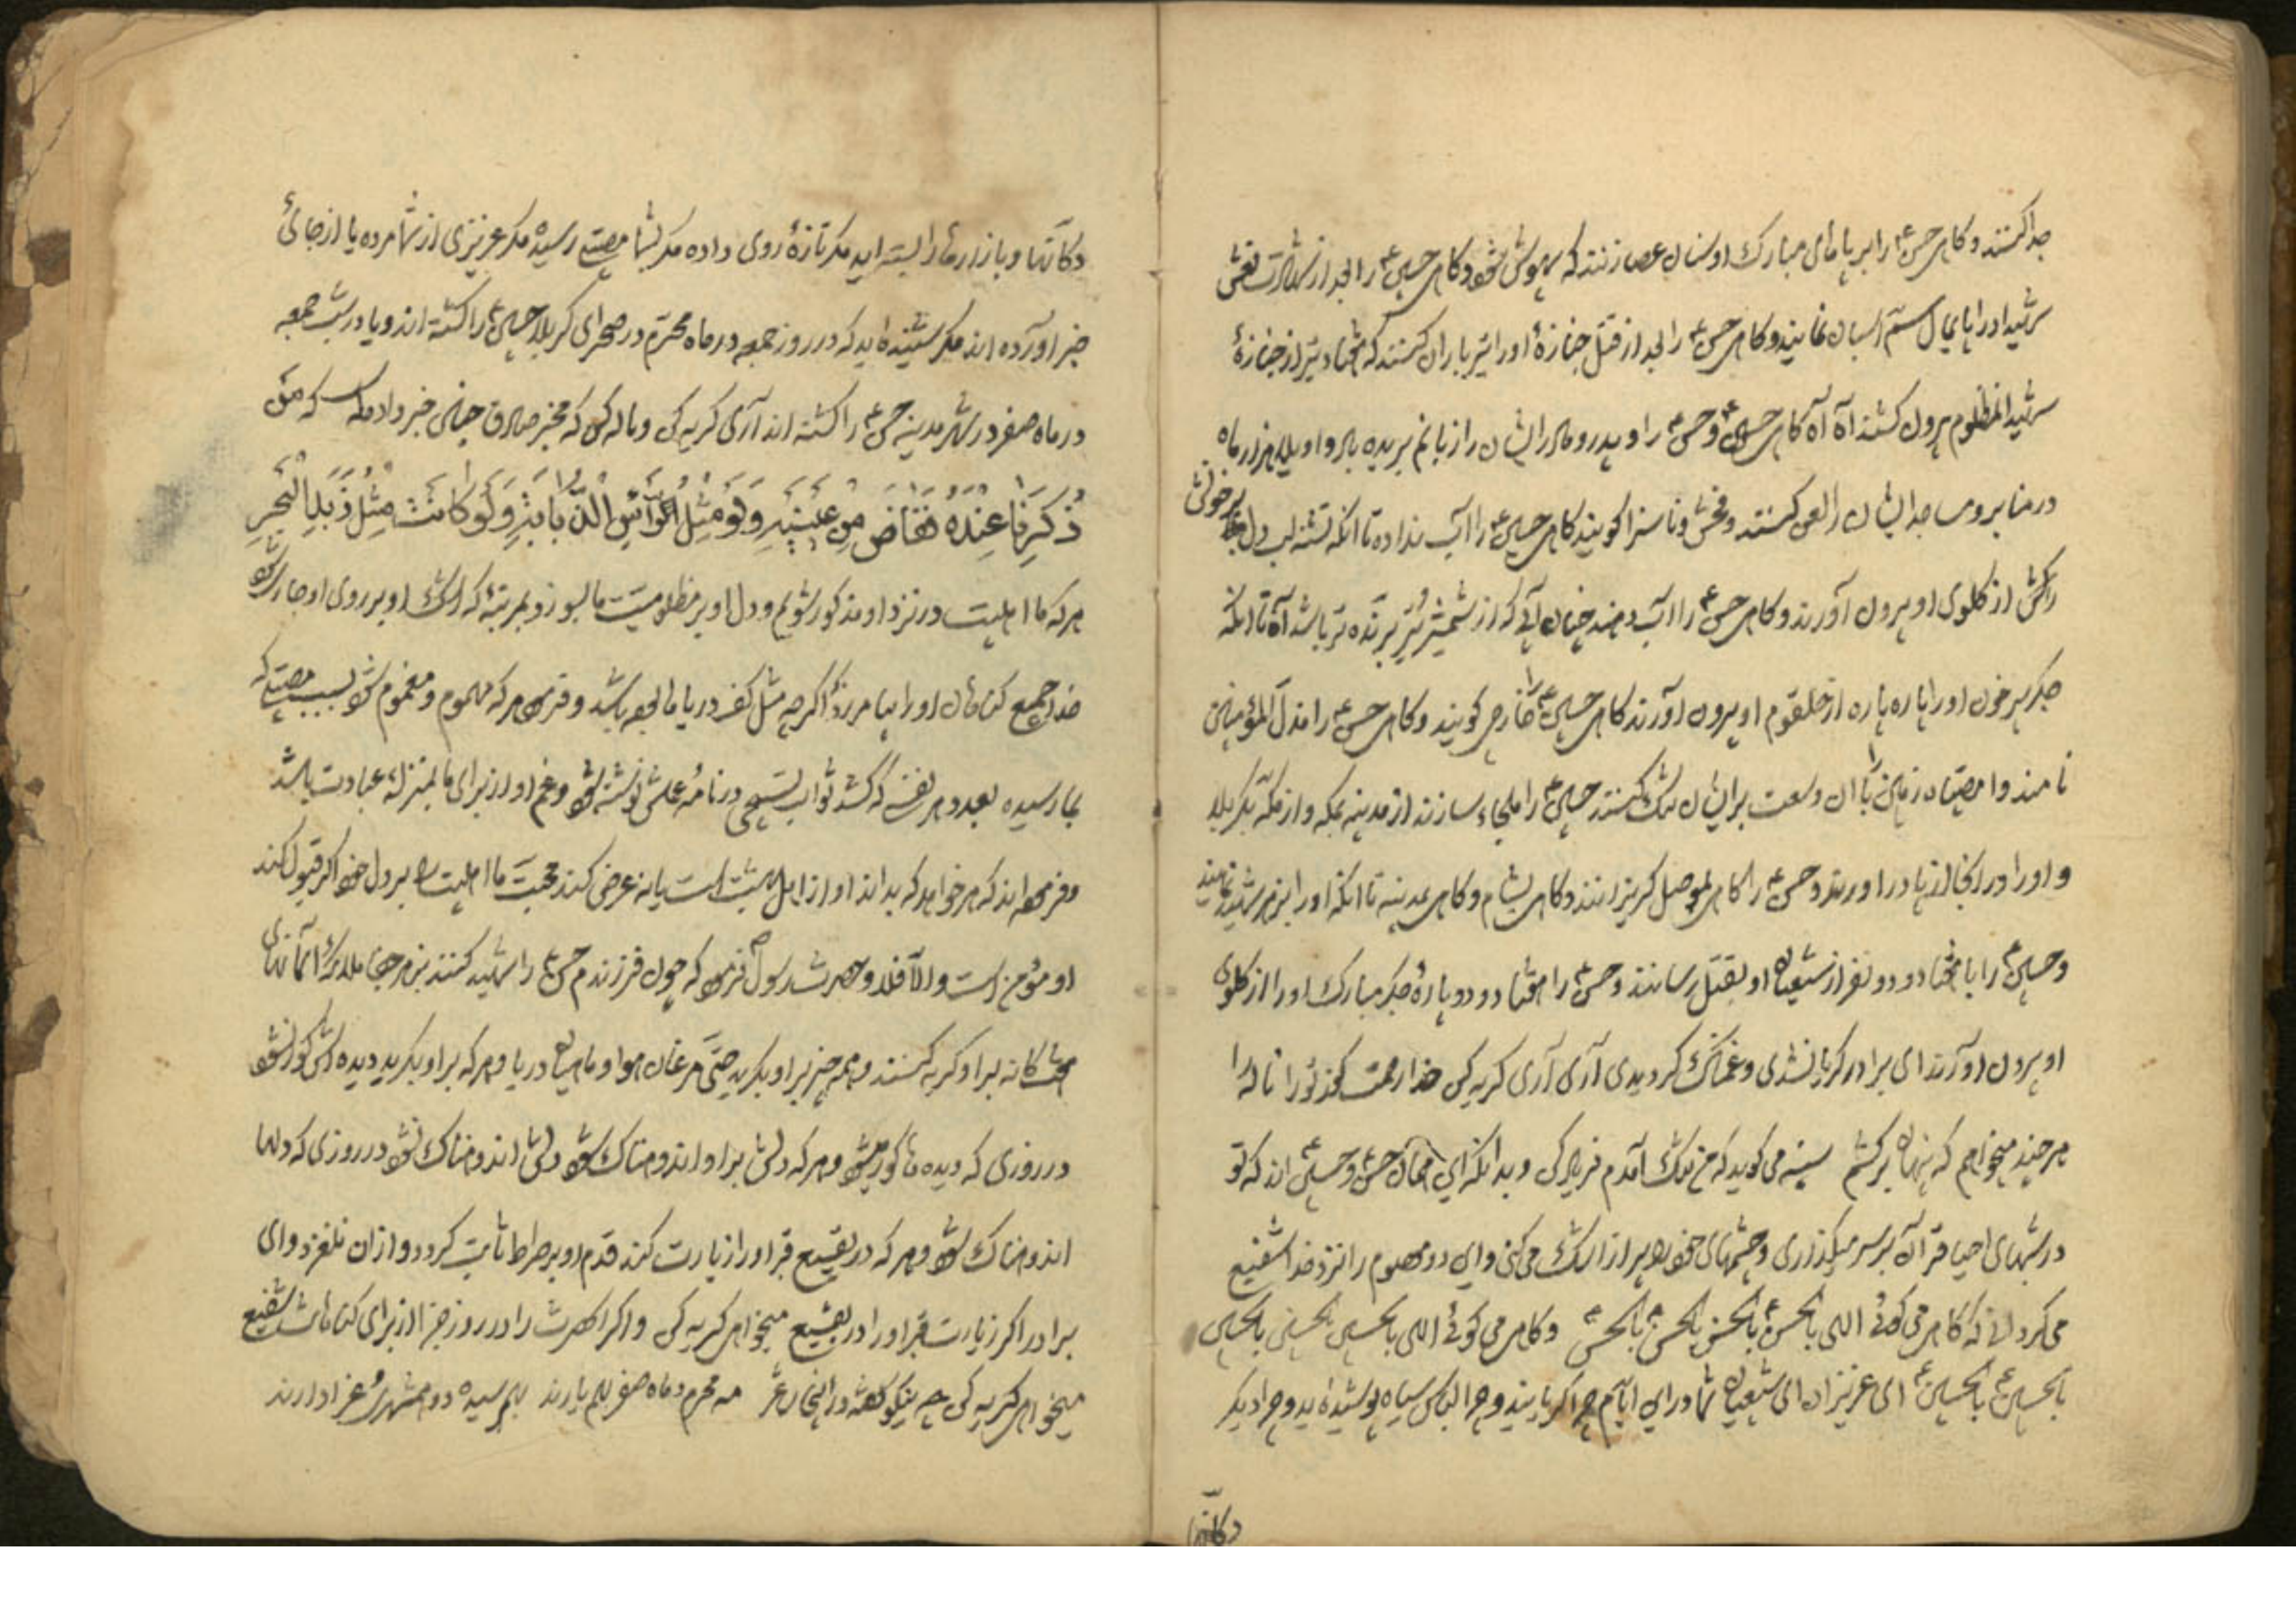 جدا کنند و کاهی حسن ع را بر پاهای مبارک او سنان عصا زنند که بیهوش شود و کاهی حسین ع را بعد از شهادت نعش
سر شید او را پایمال سم اسبان نمایند و کاهی حسن ع را بعد از قتل جنازهٔ او را تیر باران کنند که هفتاد تیر از جنازهٔ
بیرون کشند آه آه کاهی حسین ع و حسن ع را و پدر و مادر ایشان را زبانم بریده باد و اویلا هزار ماه
در منابر و مساجد ایشان را لعن کنند و فحش و ناسزا کویند کاهی حسین ع را آب نداده تا انکه تشنه لب دل پر خونش
را کش از کلوی او بیرون آورند و کاهی حسن ع را آب دهند چنان آبی که از شمشیر تیز برنده تر باشد آه تا انکه
جکر پر خون او را پاره پاره از حلقوم او بیرون آورند کاهی حسین ع خارجی کویند و کاهی حسن ع را مذل المؤمنین
نامند وا مصیبتاه زمین با ان وسعت بر ایشان تنک کنند حسین ع را ملجاء سازند از مدینه بمکه و از مکه بکربلا
و او را در انجا از پا در اورند و حسن ع را کاهی بموصل کریزانند و کاهی بشام و کاهی بمدینه تا انکه او را بزهر شهید نمایند
و حسین ع را با هفتاد و دو نفر از شیعیان او بقتل رسانند و حسن ع را هفتاد و دو پارهٔ جکر مبارک او را از کلوی
او بیرون آورند ای برادر کریان شدی و غمناک کردیدی آری آری کریه کن خدا رحمت کند تو را ناله را
هر چند میخواهم که پنهان بر کشم سینه می کوید که من تنک آمدم فریاد کن و بدانکه این همان حسن و حسین اند که تو
در شبهای احیا قرآن بر سر میکذاری و چشمهای خود را پر از اشک می کنی و این دو معصوم را نزد خدا شفیع
می کردانی که کاهی می کوئی الهی بالحسن ع بالحسن بالحسن بالحسن و کاهی می کوئی الهی بالحسین بالحسین بالحسین
بالحسین ع بالحسین ع ای عزیزان ای شیعیان شما در این ایام چرا کریانید و چرا لباس سیاه پوشیده اید و چرا دیکر
دکانها
دکانها و بازارها را بسته اید مکر تازهٔ روی داده مکر بشما مصیبتی رسیده مکر عزیزی از شما مرده یا از جائی
خبر آورده اند مکر شنیده اید که در روز جمعه در ماه محرم در صحرای کربلا حسین ع را کشته اند و یا در شب جمعه
در ماه صفر در شهر مدینه حسن ع را کشته اند آری کریه کن و ناله کن که مخبر صادق چنین خبر داده که من
ذُکِرنا عِندَهُ فَفاضَ مِن عَینَیهِ وَلَو مِثلَ رَأسِ الذُّبابِ وَلَو کانَت مِثلَ زَبَدِ البَحرِ
هر که ما اهلبیت در نزد او مذکور شویم و دل او بر مظلومیت ما بسوزد بمرتبهٔ که اشک او بر روی او جاری شود
خدا جمیع کناهان او را بیامرزد اکر چه مثل کف دریاها بوده باشد و فرمود هر که مهموم و مغموم شود بسبب مصیبتی که
بما رسیده بعدد هر نفسی که کشد ثواب تسبیحی در نامهٔ عملش نوشته شود و غم او از برای ما بمنزلهٔ عبادت باشد
و فرموده اند که هر خواهد که بداند او از اهل بهشت است یا نه عرض کند محبت ما اهلبیت را بر دل خود اکر قبول کند
او مؤمن است و الا فلا و حضرت رسول ص فرمود که چون فرزندم حسن ع را شهید کنند بزهر جفا ملائکهٔ آسمانهای
هفتکانه بر او کریه کنند و همه چیز بر او بکرید حتی مرغان هوا و ماهیان دریا و هر که بر او بکرید دیده اش کور نشود
در روزی که دیده ها کور میشود و هر که دلش بر او اندوهناک شود دلش اندوهناک نشود در روزی که دلها
اندوهناک شود و هر که در بقیع قبر او را زیارت کند قدم او بر صراط ثابت کردد و از ان نلغزد و ای
برادر اکر زیارت قبر او را در بقیع میخواهی کریه کن و اکر انحضرت را در روز جزا از برای کناهانت شفیع
میخواهی کریه کن چه نیکو کفته در اینجا شاعر مه محرم و ماه صفر بهم یارند بهم رسیده دو همشهری عزا دارند